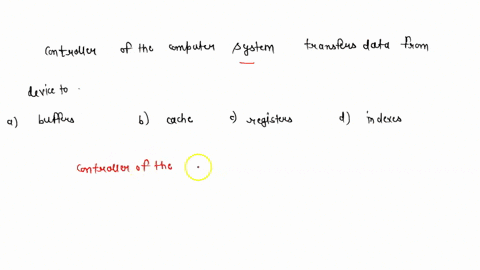 controller of the computer system transfers data from
device to .
a) buffers b) cache c) registers d) indexes
controller of the